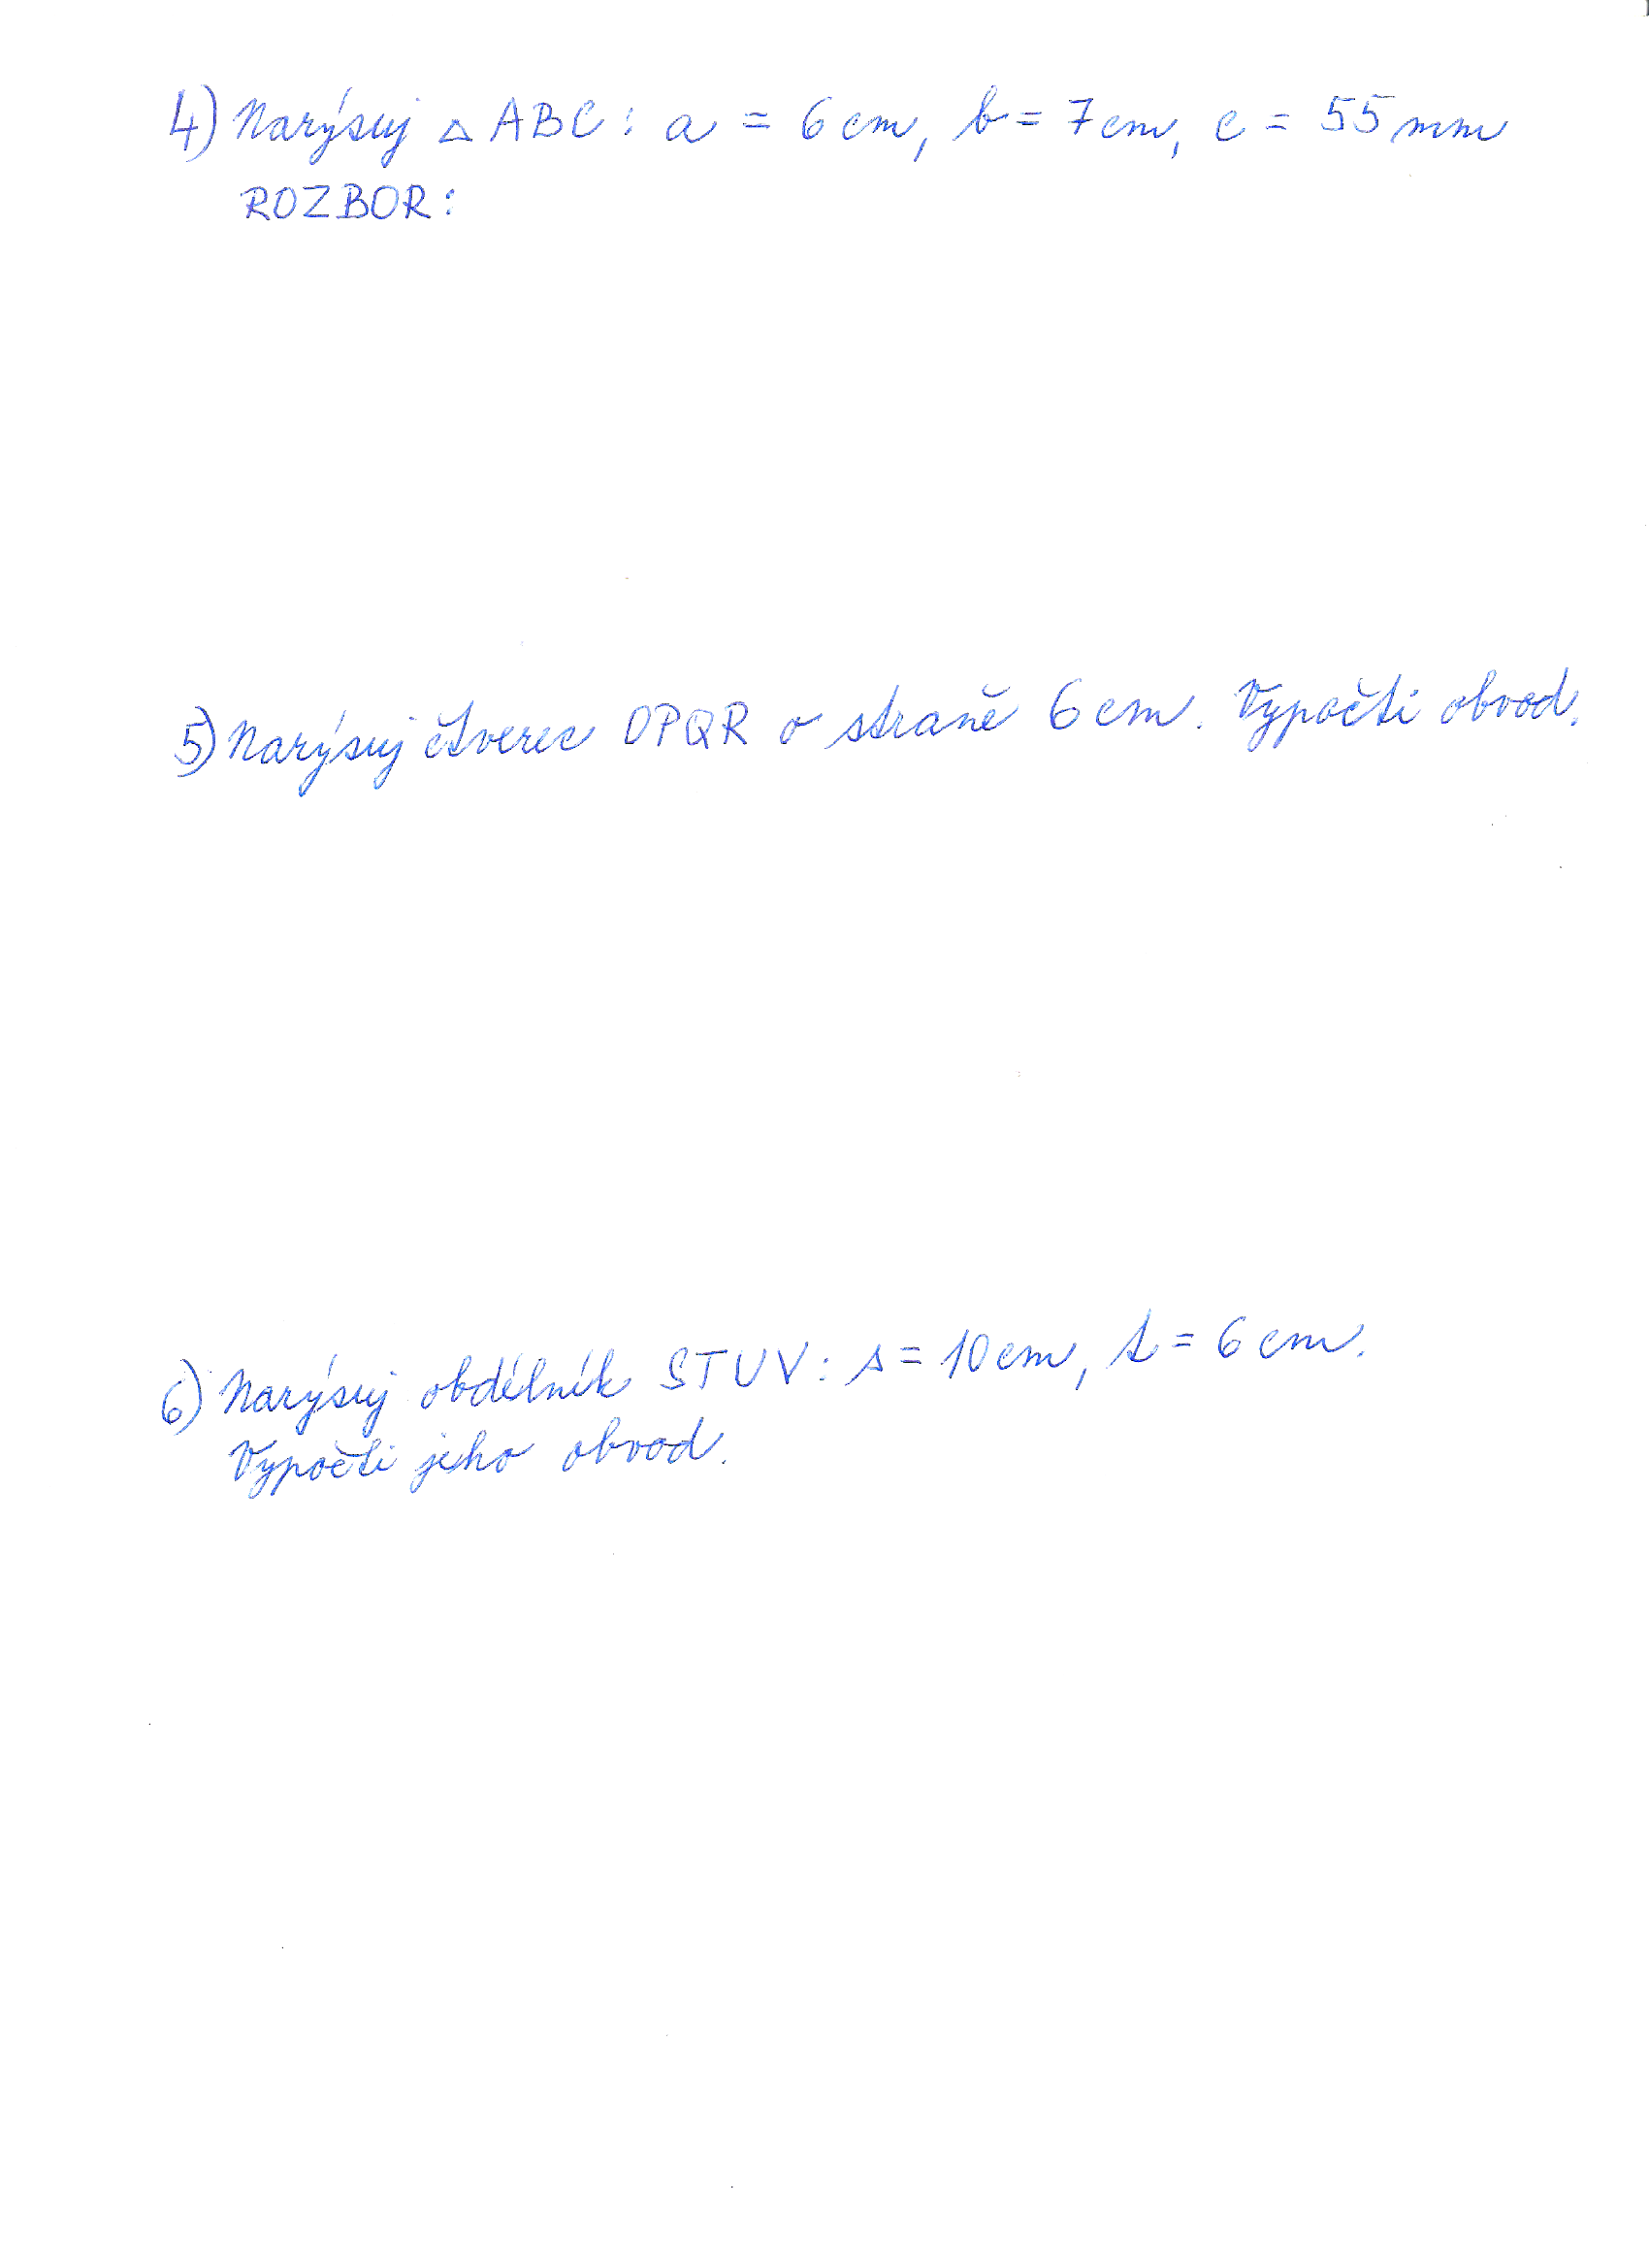 4) Narýsuj △ ABC : a = 6 cm, b = 7 cm, c = 55 mm
ROZBOR :
5) Narýsuj čtverec OPQR o straně 6 cm. Vypočti obvod.
6) Narýsuj obdélník STUV : s = 10 cm, t = 6 cm.
Vypočti jeho obvod.